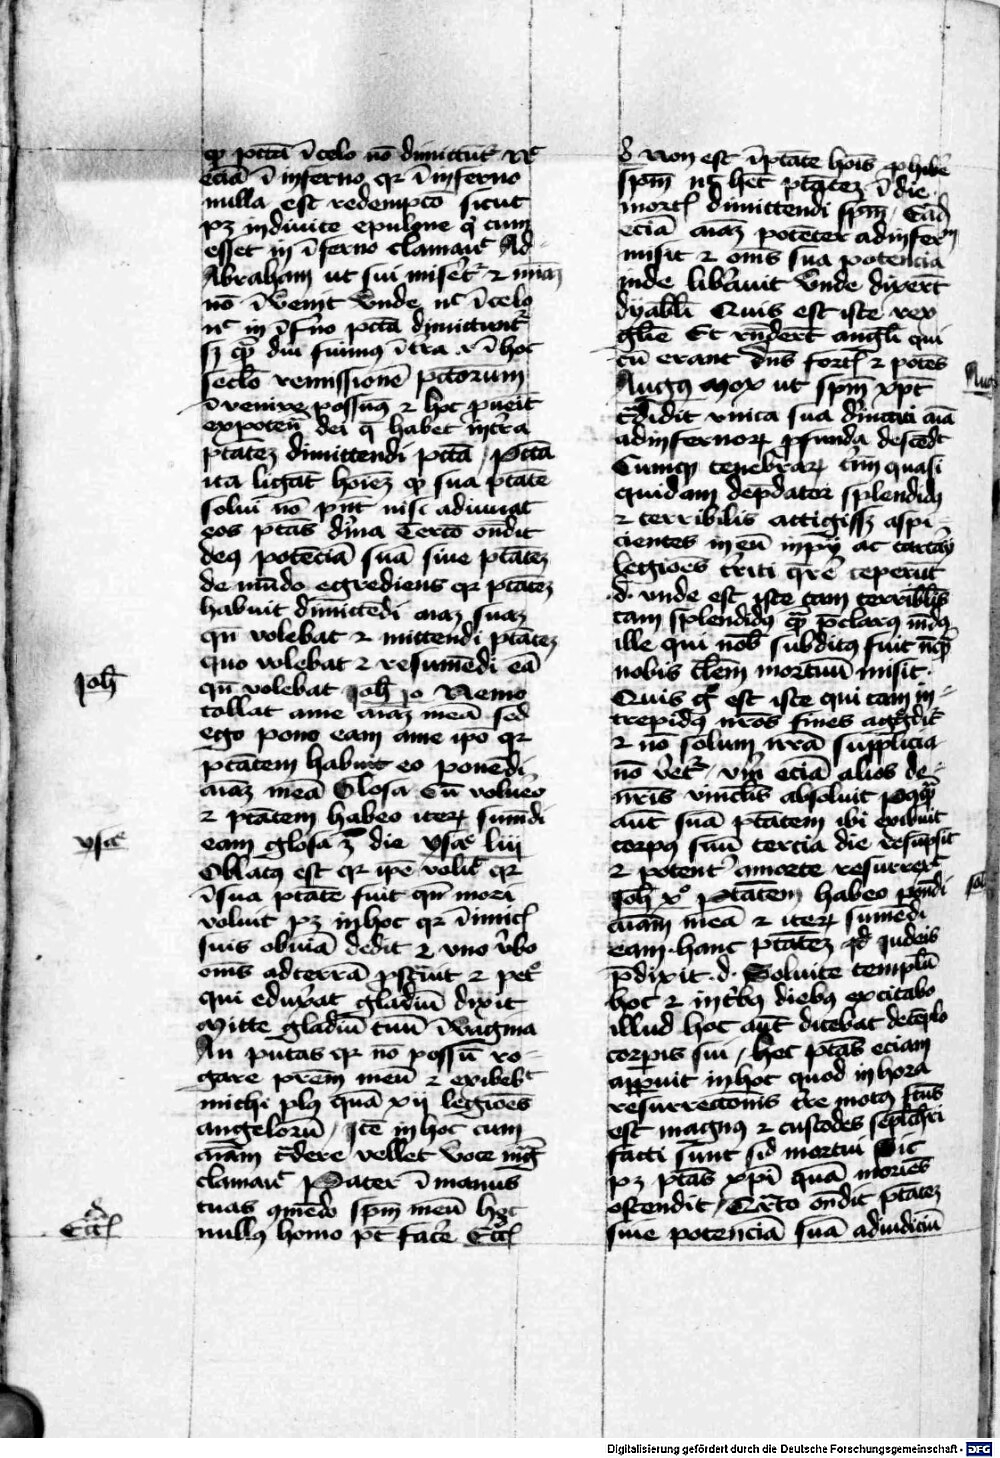 qꝫ pctā ī celo nō dimittūt᷑ nc͛
eciā ī inferno qꝛ ī inferno
nulla est redempcō sicut
pꝫ in diuite epulone qͥ cum
esset in īferno clamauͭ Ad
Abraham ut sui miseret᷑ ⁊ mīaꝫ
nō īvenit Vnde nͨ ī celo
nͨ in īfͦno pctā dimittunt᷑
sꝫ qͣ diu sumꝰ ī tra ī hoc
sclō remissionē pctorum
īvenire possumꝰ ⁊ hoc puenit
ex poten dei qͣ habet intra
ptāteꝫ dimittendi pctā / Pctā
ita ligāt hoīeꝫ qꝫ sua ptāte
solui nō pn̄t nisi adiuuat
eos ptās dīna Tercō on̄dit
deus potēciā suā siue ptāteꝫ
de mūdo egrediens qꝛ ptāteꝫ
habuit dimittēdi aīaꝫ suaꝫ
qn̄ volebat ⁊ mittendi ptāteꝫ
quo volebat ⁊ resumēdi eā
qn̄ volebat Joh̄ io Nemo
tollat a me aīaꝫ meā sed
ego pono eam a me ipo qꝛ
ptātem habeo ponēdi
aīaꝫ meā Glosa Cū voluero
⁊ ptātem habeo iteꝝ sumēdi
eam glosa 3ͣ die ysaͤ liij
Oblatꝰ est qꝛ ipē voluͭ qꝛ
ī sua ptāte fuit qn̄ mori
voluit pꝫ in hoc qꝛ īimicͭ
suis obuiā dedit ⁊ vno v̄bo
om̄s ad terrā pstͣuit ⁊ petͦ
qui eduxͣat gladiū dixit
Mitte gladiū tuū ī vagīna
An putas qꝛ nō possū ro-
gare prēm meū ⁊ exibebͭ
michi plꝰ quā xij legiōes
angelorū / Itē in hoc cum
aīam tͣdere vellet voce mͣg̅
clamauͭ Pater ī manus
tuas ꝯmēdo spm̄ meū hoc
nullꝰ homo pōt facͤe Ecc̄ͭ
Joh̄
ysaͤ
Ecc̄ͭ
8 Non est ī ptāte hoīs ꝓhibͤe
spm̄ nͨ het ptāteꝫ ī die
mortͭ dimittendi spm̄ / Eād
eciā aīaꝫ potēter ad infern̄
misit ⁊ om̄s sua potencia
inde libͣauit vnde dixerūt
dyaboli Quis est iste rex
glīe Et rn̄derūt angeli qui
cū erant dn̄s fortͭ ⁊ potēs
Augꝰ Mox ut spm̄ xpc̄
tͣdidit vnica sua dīnitati aīa
ad infernoꝝ ꝓfunda descēdͭ
Cumqꝫ tenebraꝝ t̄m quasi
quidam depͣdator splendidꝰ
⁊ terribilis attigissꝫ aspi-
cientes in eū impij ac tartāij
legioēs tͤriti qͣrͤe ceperūt
d. vnde est iste tam terribilis
tam splendidꝰ qͣ pͣclarꝰ mūdꝰ
ille qui nob̄ subditꝰ fuit nūqͣ
nobis talem mortuū misit.
Quis gͦ est iste qui tam in-
trepidꝰ nr̄os fines aggͤdit᷑
⁊ nō solum nr̄a supplicia
nō vͤet᷑ vͦm eciā alios de
nr̄is vinclis absoluit Postqͣ
aut suā ptātem ibi exibuit
corpꝰ suū tercia die resūpsit
⁊ potentͤ a morte resurrexit
Joh̄ xͦ Ptātem habeo ponēdi
aīam meā ⁊ iteꝝ sumēdi
eam. hanc ptāteꝫ iꝑe Judeis
pͣdixit. d. Soluite templū
hoc ⁊ in tͥbꝰ diebꝰ excitabo
illud hoc aūt dicebat de tēplo
corpis sui / hec ptās eciam
apparuit in hoc quod in hora
resurrectonis tͤre motꝰ fc̄us
est magnꝰ ⁊ custodes sepulchri
facti sunt sicͭ mortui Sic
pꝫ ptās xpi quā moriēs
ostendit / Qͣrto on̄dit ptāteꝫ
siue potenciā suā ad iudiciū
Augꝰ
Joh̄
Digitalisierung gefördert durch die Deutsche Forschungsgemeinschaft - DFG